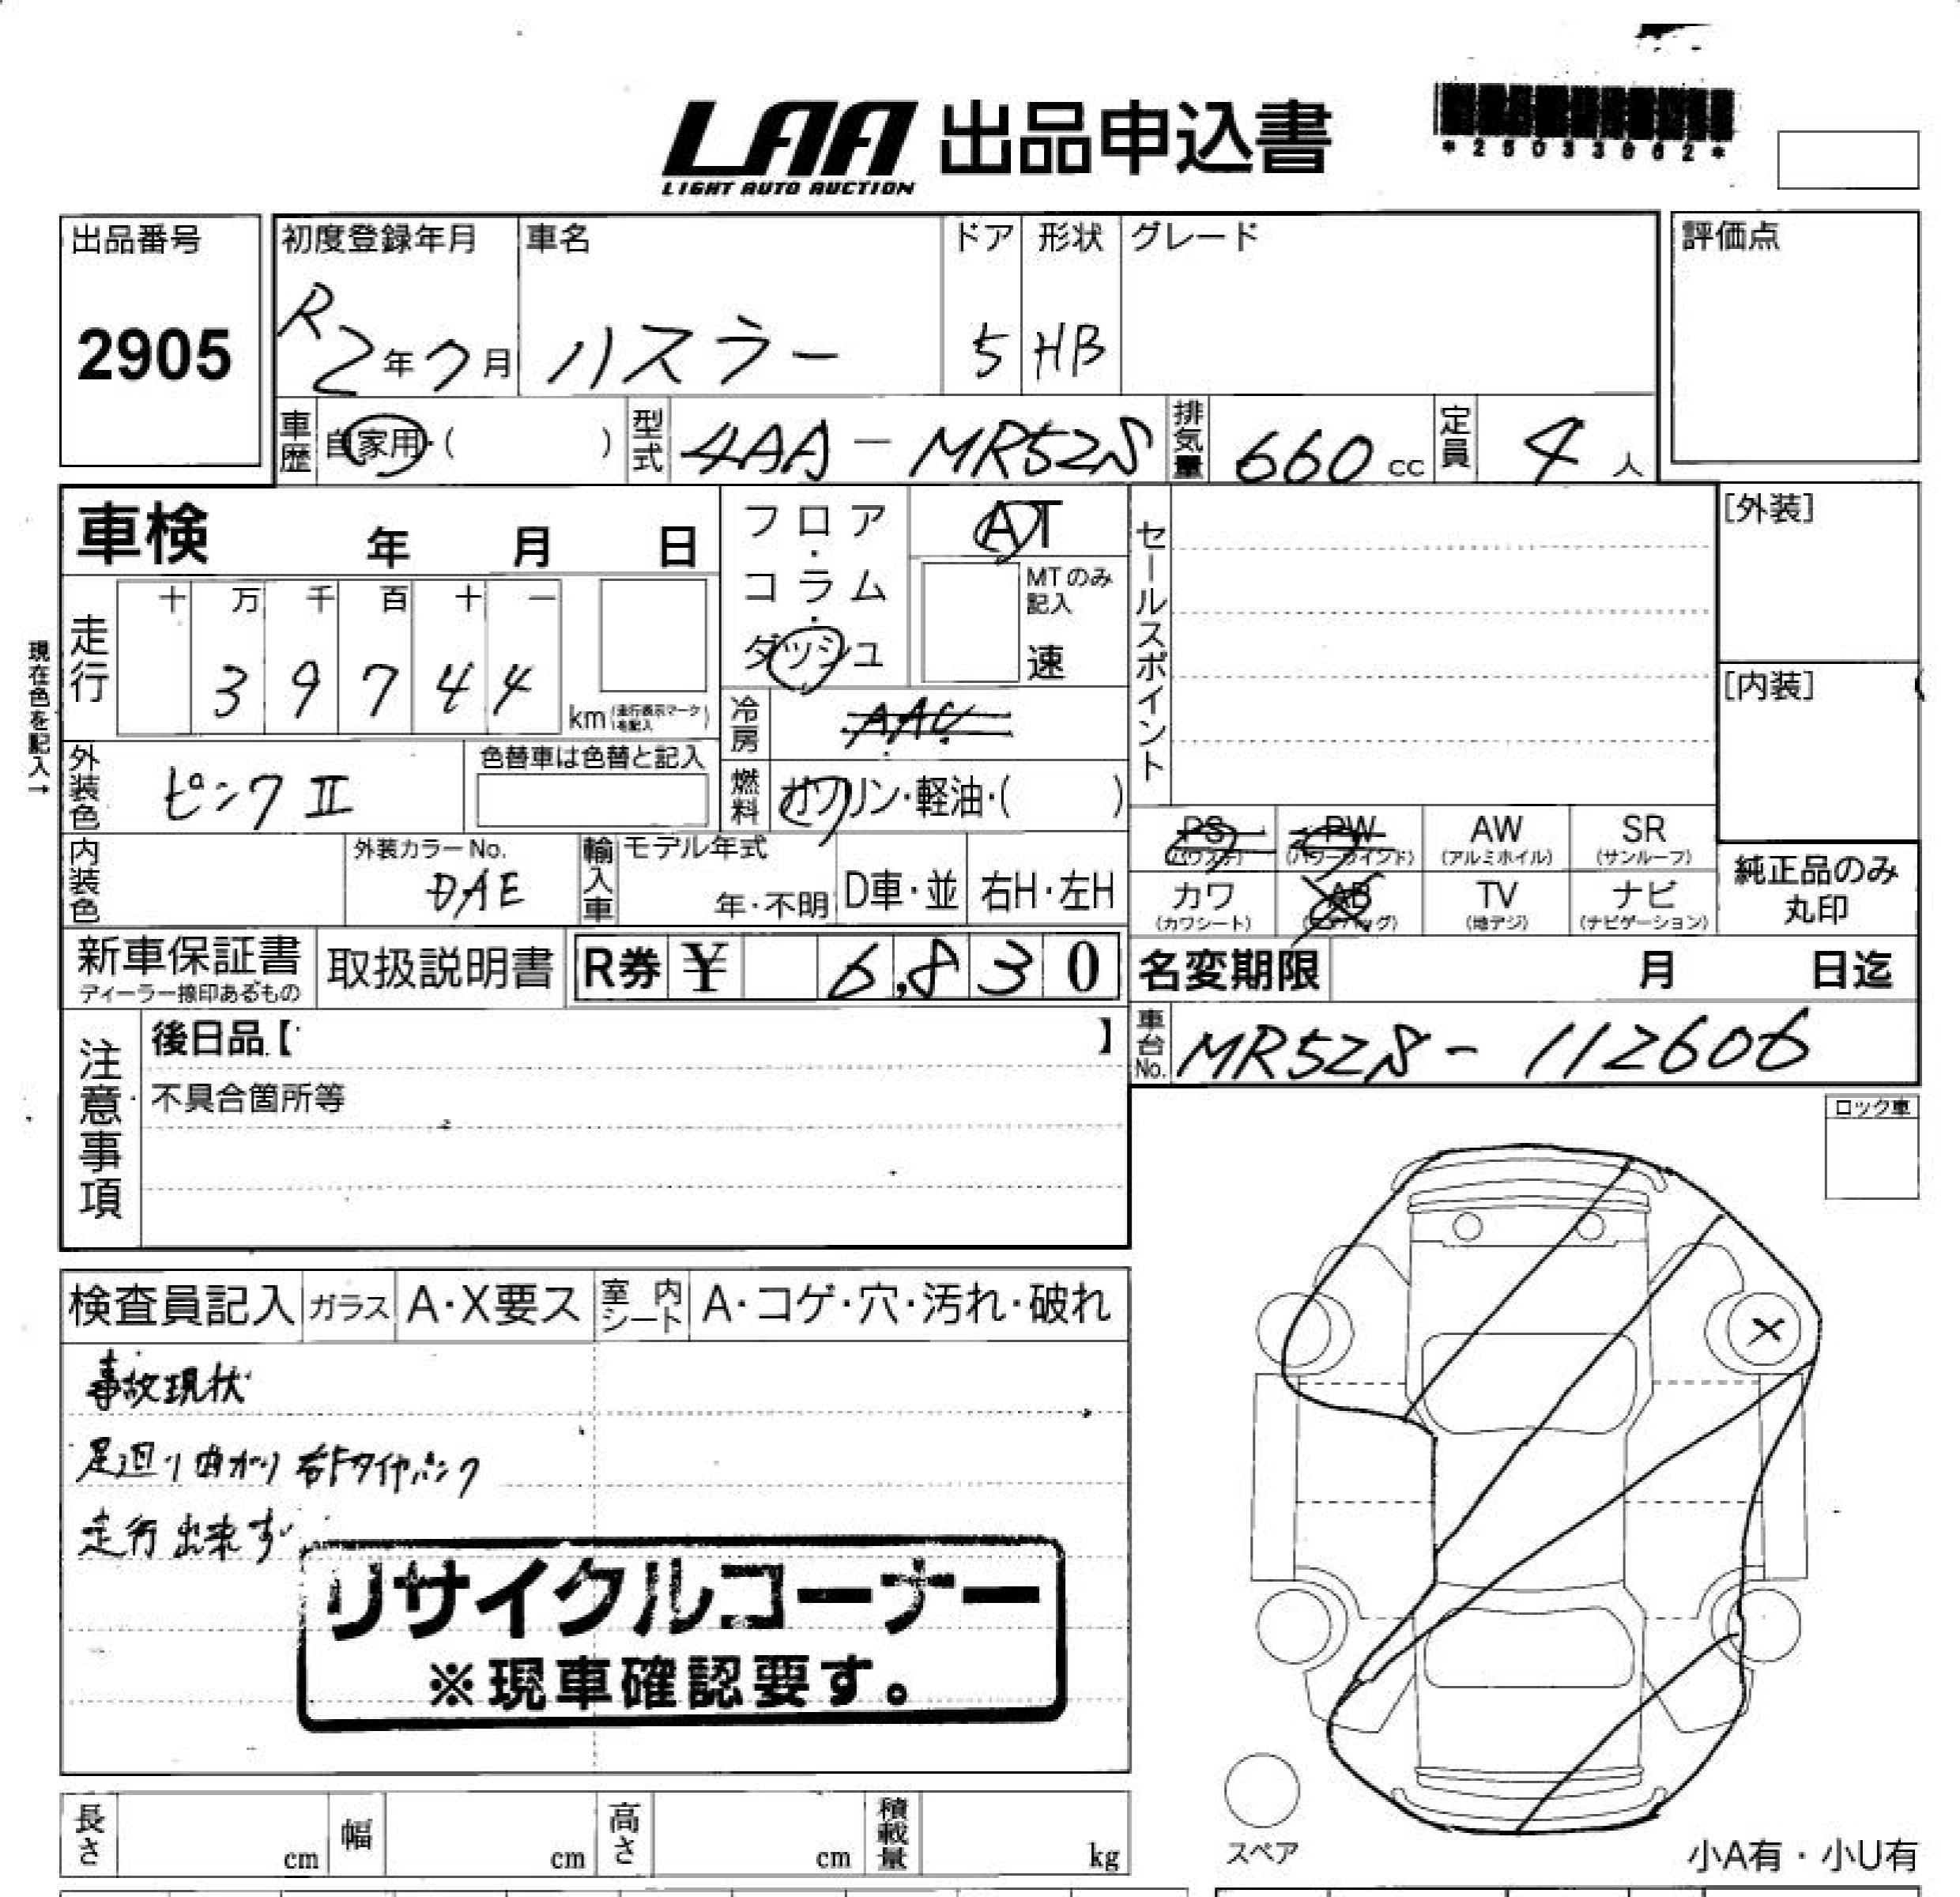 LAA 出品申込書
LIGHT AUTO AUCTION
出品番号
2905
初度登録年月
R2年7月
車名
ハスラー
ドア
5
形状
HB
グレード
評価点
車歴
自家用・( )
型式
4AA-MR52S
排気量
660cc
定員
4人
車検 年 月 日
フロア・コラム・ダッシュ
AT
MTのみ記入
速
セールスポイント
[外装]
[内装]
現在色を記入→
走行
十 万 千 百 十 一
3 9 7 4 4
km (走行表示マークを記入)
冷房
AAC
燃料
ガソリン・軽油・( )
外装色
ピンクⅡ
色替車は色替と記入
内装色
外装カラーNo.
DAE
輸入車
モデル年式
年・不明
D車・並
右H・左H
PS
(パワステ)
PW
(パワーウインド)
AW
(アルミホイル)
SR
(サンルーフ)
カワ
(カワシート)
AB
(エアバッグ)
TV
(地デジ)
ナビ
(ナビゲーション)
純正品のみ
丸印
新車保証書
ディーラー捺印あるもの
取扱説明書
R券 ¥ 6,830
名変期限 月 日迄
車台No.
MR52S-112606
注意事項
後日品【 】
不具合箇所等
ロック車
検査員記入
ガラス
A・X要ス
室内シート
A・コゲ・穴・汚れ・破れ
事故現状
足廻り曲がり 右Fタイヤパンク
走行出来ず
リサイクルコーナー
※現車確認要す。
×
スペア
小A有・小U有
長さ cm
幅 cm
高さ cm
積載量 kg